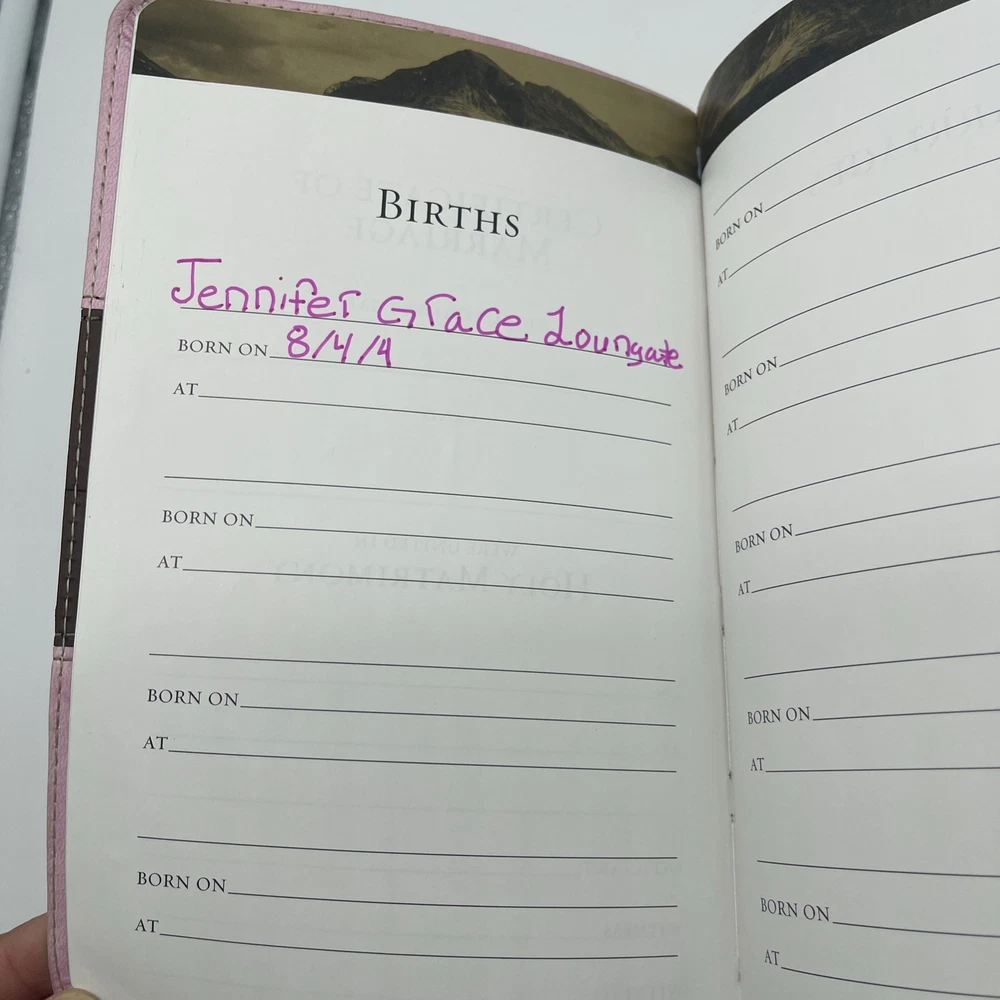 BIRTHS
Jennifer Grace Loungate
BORN ON 8/4/4
AT
BORN ON
AT
BORN ON
AT
BORN ON
AT
BORN ON
AT
BORN ON
AT
BORN ON
AT
BORN ON
AT
BORN ON
AT